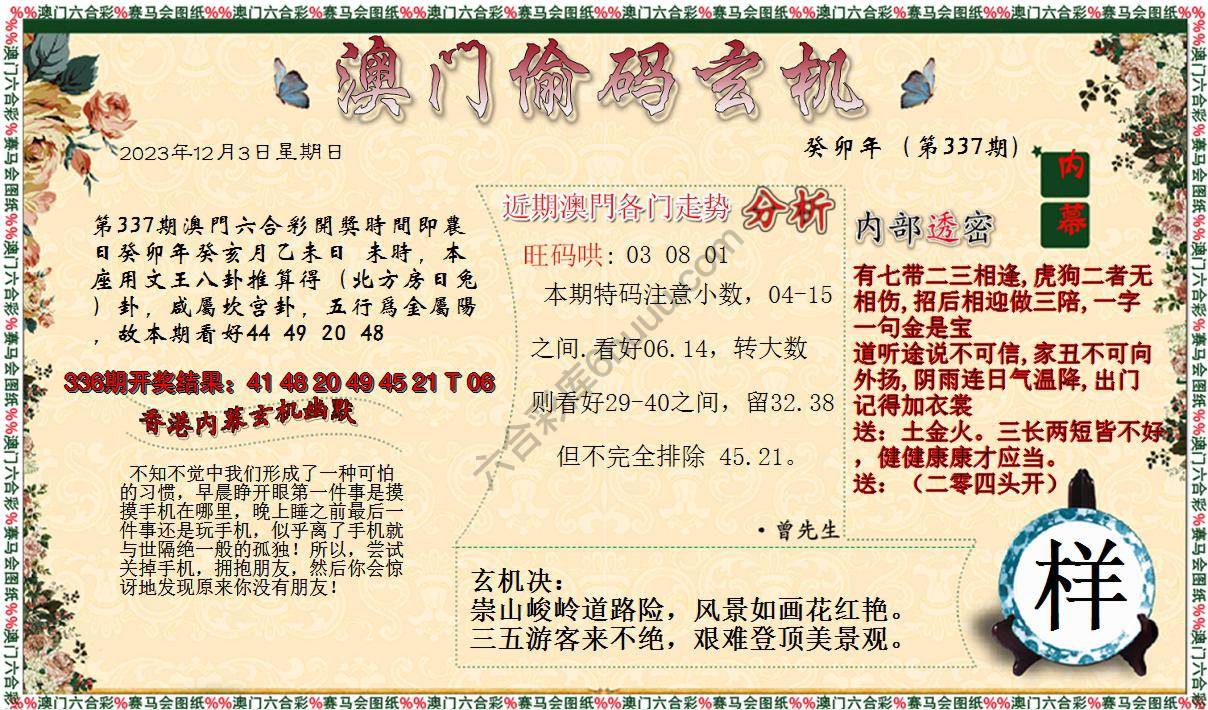 %%澳门六合彩%赛马会图纸%%澳门六合彩%赛马会图纸%%澳门六合彩%赛马会图纸%%澳门六合彩%赛马会图纸%%澳门六合彩%赛马会图纸%%澳门六合彩%赛马会图纸%%
澳门偷码玄机
2023年12月3日星期日
癸卯年（第337期）
内幕
第337期澳門六合彩開獎時間即農
日癸卯年癸亥月乙未日 未時，本
座用文王八卦推算得（北方房日兔
）卦，咸屬坎宫卦，五行爲金屬陽
，故本期看好44 49 20 48
336期开奖结果：41 48 20 49 45 21 T 06
香港内幕玄机幽默
不知不觉中我们形成了一种可怕
的习惯，早晨睁开眼第一件事是摸
摸手机在哪里，晚上睡之前最后一
件事还是玩手机，似乎离了手机就
与世隔绝一般的孤独！所以，尝试
关掉手机，拥抱朋友，然后你会惊
讶地发现原来你没有朋友！
近期澳門各门走势 分析
旺码哄: 03 08 01
本期特码注意小数，04-15
之间.看好06.14，转大数
则看好29-40之间，留32.38
但不完全排除 45.21。
·曾先生
内部透密
有七带二三相逢,虎狗二者无
相伤,招后相迎做三陪,一字
一句金是宝
道听途说不可信,家丑不可向
外扬,阴雨连日气温降,出门
记得加衣裳
送：土金火。三长两短皆不好
，健健康康才应当。
送：（二零四头开）
玄机决：
崇山峻岭道路险，风景如画花红艳。
三五游客来不绝，艰难登顶美景观。
样
%%澳门六合彩%赛马会图纸%%澳门六合彩%赛马会图纸%%澳门六合彩%赛马会图纸%%澳门六合彩%赛马会图纸%%澳门六合彩%赛马会图纸%%澳门六合彩%赛马会图纸%%